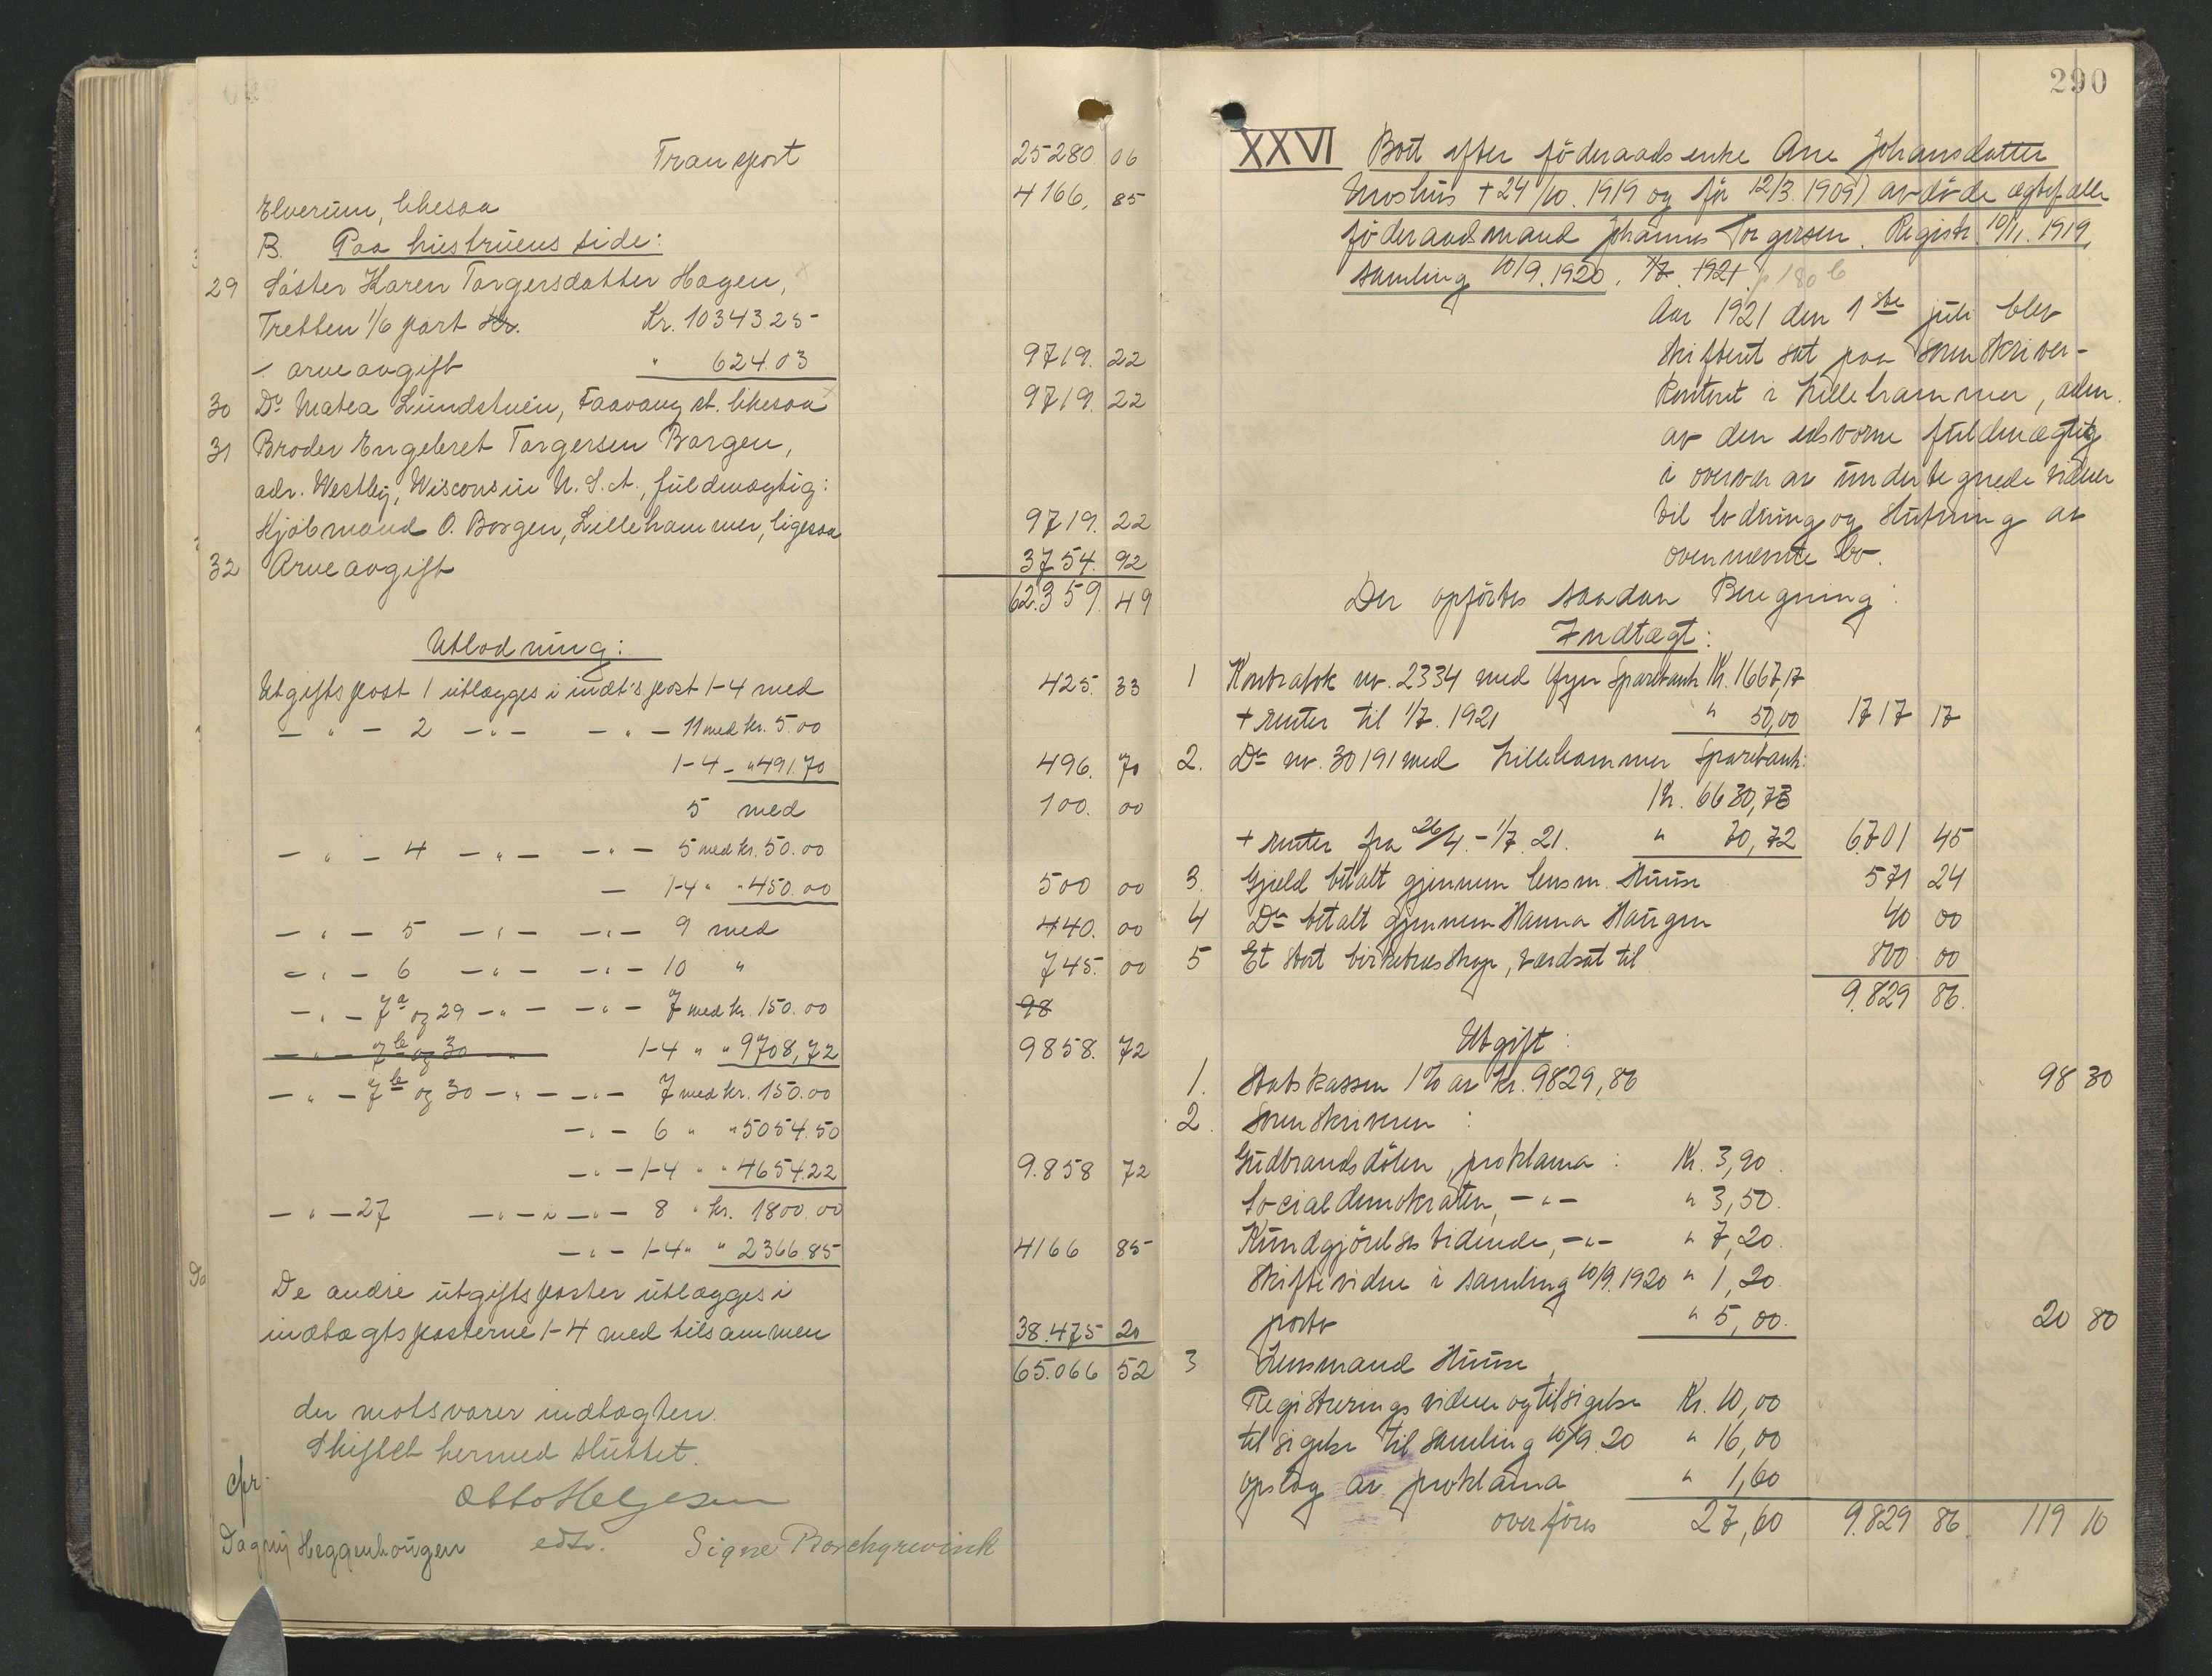 Transport 25280. 06
Elverum, likesaa 4166, 85
B. Paa hustruens side:
29 Søster Karen Torgersdatter Hagen,
Tretten 1/6 part Kr. Kr. 10343.25
÷ arveavgift " 624.03 9719. 22
30 Do Matea Lundstuen, Faavang st. likesaa 9719. 22
31 Broder Engebret Torgersen Borgen,
adr. Westby, Wisconsin U.S.A., fuldmægtig:
Kjøbmand O. Borgen, Lillehammer, ligesaa 9719. 22
32 Arveavgift 3754. 92
62.359. 49
Utlodning:
Utgiftspost 1 utlægges i indt's post 1-4 med 425. 33
— " — 2 — " — — " — 11 med kr. 5.00
1-4 — " 491.70 496. 70
5 med 100. 00
— " — 4 — " — — " — 5 med kr. 50.00
— 1-4 " " 450.00 500 00
— " — 5 — " — — " — 9 med 440. 00
— " — 6 — " — — " — 10 " 745. 00
— " — 7a og 29 — " — — " — 7 med kr. 150.00 98
— " — 7b og 30 — " — 1-4 " " 9708,72 9858. 72
— " — 7b og 30 — " — — " — 7 med kr. 150.00
— " — 6 " " 5054.50
— " — 1-4 " " 4654.22 9.858 72
— " — 27 — " — i — " — 8 " kr. 1800.00
— " — 1-4 " " 2366.85 4166 85
De andre utgiftsposter utlægges i
indtægtsposterne 1-4 med tilsammen 38.475 20
65.066 52
der motsvarer indtægten.
Skiftet hermed sluttet.
cpr.
Otto Helgesen
Dagny Heggenhougen edsv. Signe Borchgrevink
290
XXVI Boet efter føderaadsenke Ane Johansdatter
Moshus + 24/10. 1919 og før 12/3. 1909) avdøde ægtefælle
føderaadsmand Johannes Torgersen. Registr. 10/11. 1919,
samling 10/9. 1920. 1/7. 1921. p 180 b
Aar 1921 den 1ste juli blev
skifteret sat paa Sorenskriver-
kontoret i Lillehammer, adm.
av den edsvorne fuldmægtig
i overvær av undertegnede vidner
til lodning og slutning av
ovennævnte bo.
Der opførtes saadan Beregning:
Indtægt:
1 Kontrabok nr. 2334 med Øyer Sparebank Kr. 1667,17
+ renter til 1/7. 1921 " 50,00 1717 17
2. Do nr. 30191 med Lillehammer Sparebank:
Kr. 6630,73
+ renter fra 26/4. - 1/7. 21. " 70,72 6701 45
3. Gjæld betalt gjennem lensm. Huuse 571 24
4 Do betalt gjennem Hanna Haugen 40 00
5 Et stort birketræs skap, værdsat til 800 00
9.829 86.
Utgift:
1. Statskassen 1% av kr. 9829,86 98 30
2. Sorenskriveren:
Gudbrandsdølen, proklama: Kr. 3,90.
Socialdemokraten, — " — " 3,50.
Kundgjørelsestidende, — " — " 7,20.
Skiftevidne i samling 10/9. 1920 " 1,20.
porto " 5,00. 20 80
3 Lensmand Huuse
Registreringsvidner og tilsigelse Kr. 10,00
tilsigelse til samling 10/9. 20 " 16,00
opslag av proklama " 1,60
overføres 27,60 9.829 86. 119 10